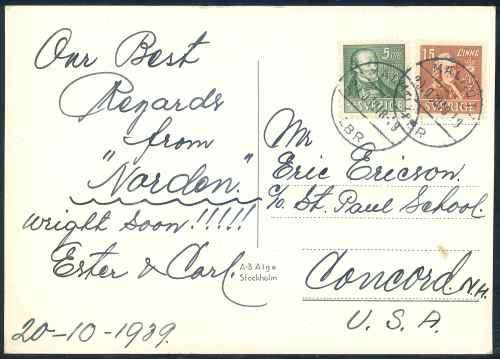 Our Best
Regards
from
"Norden."
wright soon!!!!!
Ester & Carl.
20-10-1939.
A-B Alga
Stockholm
5 ÖRE
SVERIGE
15 LINNÉ
SVERIGE
MALMÖ
LBR
Mr
Eric Ericson.
c/o St. Paul School.
Concord. N.H.
U. S. A.